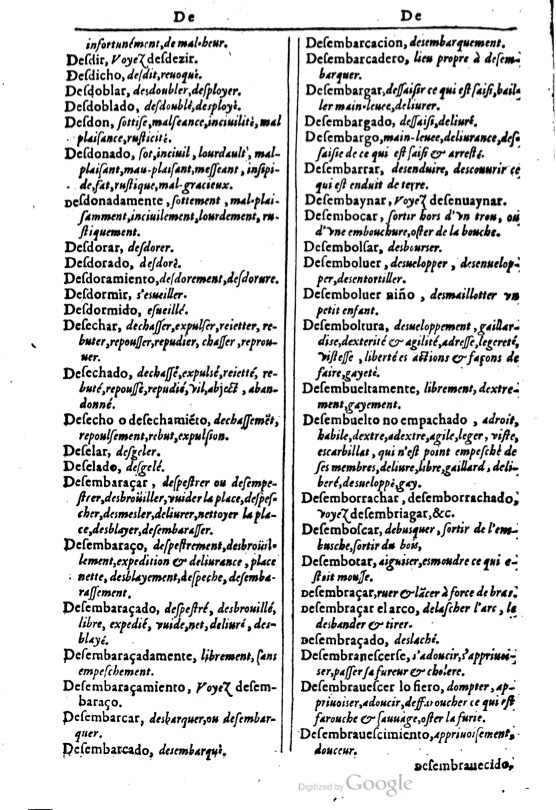 De
De
infortunément, de mal-heur.
Desdir, Voyeʒ desdezir.
Desdicho, desdit, reuoqué.
Desdoblar, desdoubler, desployer.
Desdoblado, desdoublé, desployé.
Desdon, sottise, malseance, inciuilité, mal
plaisance, rusticité.
Desdonado, sot, inciuil, lourdault, mal-
plaisant, mau-plaisant, messeant, insipi-
de, fat, rustique, mal-gracieux.
Desdonadamente, sottement, mal-plai-
samment, inciuilement, lourdement, ru-
stiquement.
Desdorar, desdorer.
Desdorado, desdoré.
Desdoramiento, desdorement, desdorure.
Desdormir, s'esueiller.
Desdormido, esueillé.
Desechar, dechasser, expulser, reietter, re-
buter, repousser, repudier, chasser, reprou-
uer.
Desechado, dechassé, expulsé, reietté, re-
buté, repoussé, repudié, vil, abject, aban-
donné.
Desecho o desechamiẽto, dechassemẽt,
repoulsement, rebut, expulsion.
Deselar, desgeler.
Deselado, desgelé.
Desembaraçar, despestrer ou desempe-
strer, desbroüiller, vuider la place, despes-
cher, desmesler, deliurer, nettoyer la pla-
ce, desblayer, desembarasser.
Desembaraço, despestrement, desbroüil-
lement, expedition & deliurance, place
nette, desblayement, despeche, desemba-
rassement.
Desembaraçado, despestré, desbrouillé,
libre, expedié, vuide, net, deliuré, des-
blayé.
Desembaraçadamente, librement, sans
empeschement.
Desembaraçamiento, Voyeʒ desem-
baraço.
Desembarcar, desbarquer, ou desembar-
quer.
Desembarcado, desembarqué.
Desembarcacion, desembarquement.
Desembarcadero, lieu propre à desem-
barquer.
Desembargar, dessaisir ce qui est saisi, bail-
ler main-leuce, deliurer.
Desembargado, dessaisi, deliuré.
Desembargo, main-leuee, deliurance, des-
saisie de ce qui est saisi & arresté.
Desembarrar, desenduire, descouurir ce
qui est enduit de terre.
Desembaynar, Voyeʒ desenuaynar.
Desembocar, sortir hors d'vn trou, ou
d'vne embouchure, oster de la bouche.
Desembolsar, desbourser.
Desemboluer, desuelopper, desenuelop-
per, desentortiller.
Desemboluer niño, desmaillotter vn
petit enfant.
Desemboltura, desueloppement, gaillar-
dise, dexterité & agilité, adresse, legereté,
vistesse, liberté es actions & façons de
faire, gayeté.
Desembueltamente, librement, dextre-
ment, gayement.
Desembuelto no empachado, adroit,
habile, dextre, adextre, agile, leger, viste,
escarbillas, qui n'est point empesché de
ses membres, deliure, libre, gaillard, deli-
beré, desueloppé, gay.
Desemborrachar, desemborrachado,
voyeʒ desembriagar, &c.
Desemboscar, debusquer, sortir de l'em-
busche, sortir du bois,
Desembotar, aiguiser, esmoudre ce qui e-
stoit mousse.
Desembraçar, ruer & lãcer à force de bras.
Desembraçar el arco, delascher l'arc, le
desbander & tirer.
Desembraçado, deslaché.
Desembranescerse, s'adoucir, s'appriuoi-
ser, passer sa fureur & cholere.
Desembrauescer lo fiero, dompter, ap-
priuoiser, adoucir, deffaroucher ce qui est
farouche & sauuage, oster la furie.
Desembrauescimiento, appriuoisement,
douceur.
Desembrauecido,
Digitized by Google